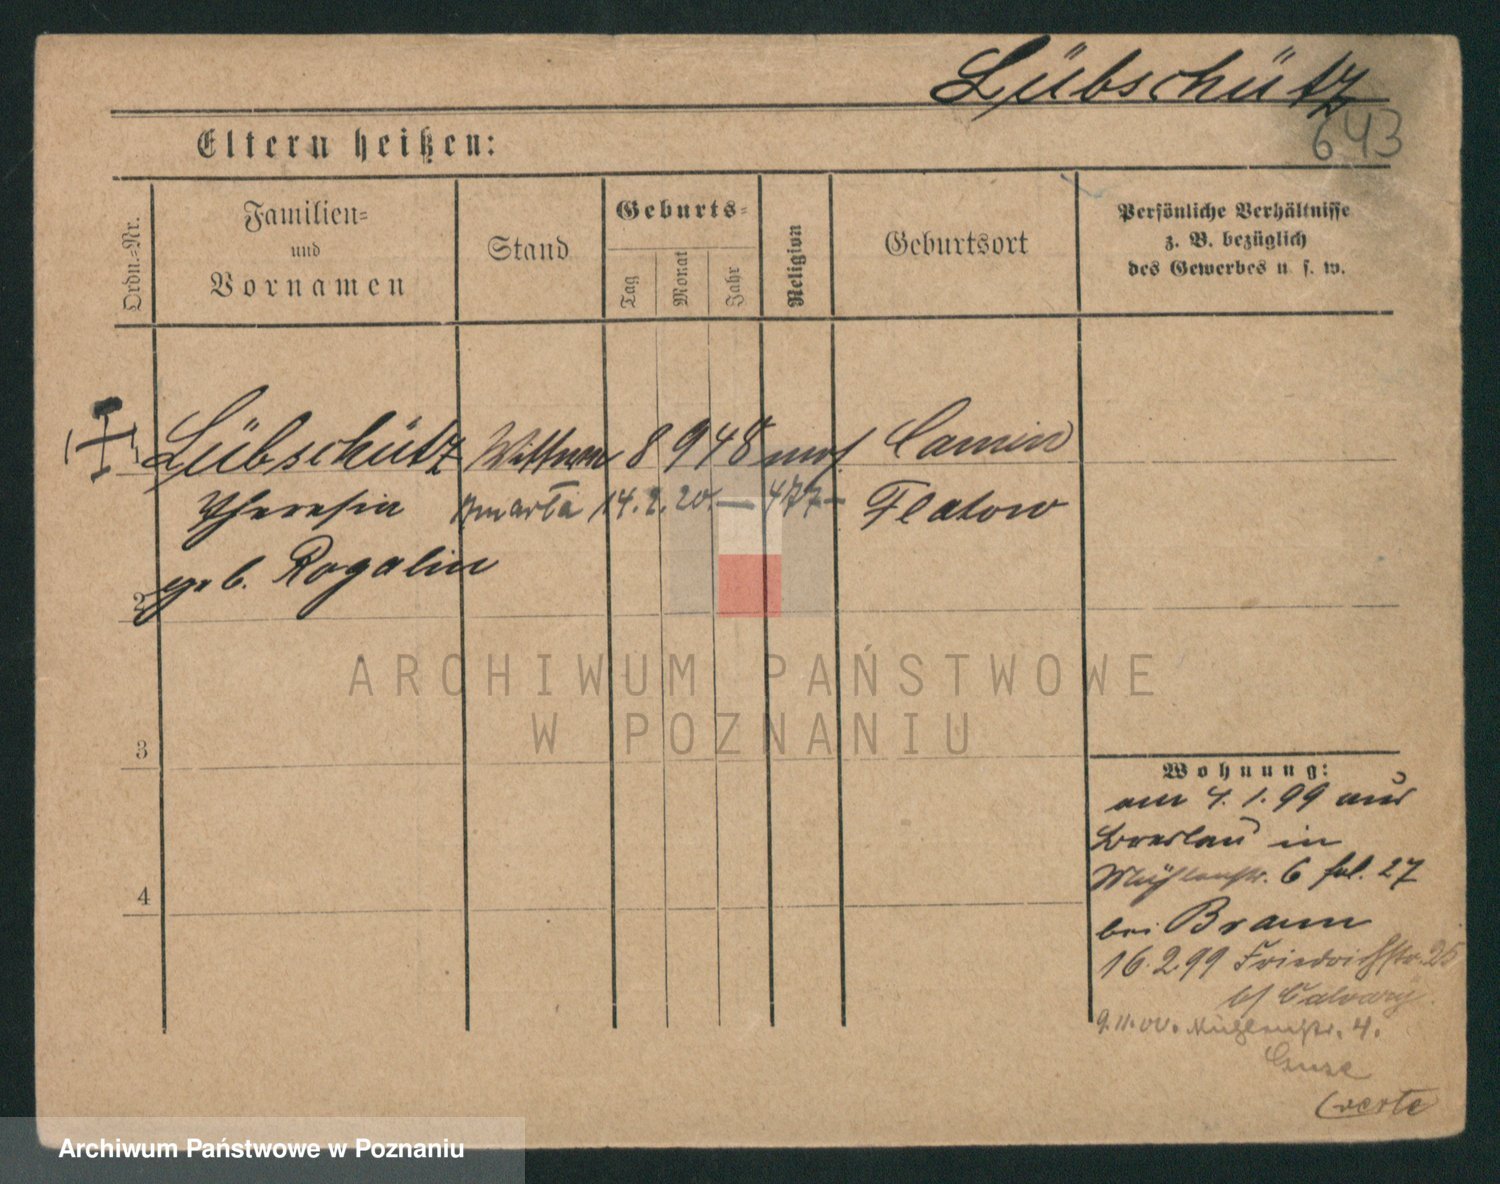 Lübschütz
643
Eltern heißen:
Ordn.-Nr.
Familien-
und
Vornamen
Stand
Geburts-
Tag
Monat
Jahr
Religion
Geburtsort
Persönliche Verhältnisse
z. B. bezüglich
des Gewerbes u. s. w.
1 Lübschütz 8 9 48 mos Camin
Theresia zmarła 14.2.20. — 477 — Flatow
geb. Rogalin
2
3
4
Wohnung:
am 4.1.99 aus
Breslau in
Mühlenstr. 6 fol. 27
bei Braun
16.2.99 Friedrichstr. 25
b/ Calvary.
9.11.00. Mühlenstr. 4.
(verte
ARCHIWUM PAŃSTWOWE
W POZNANIU
Archiwum Państwowe w Poznaniu